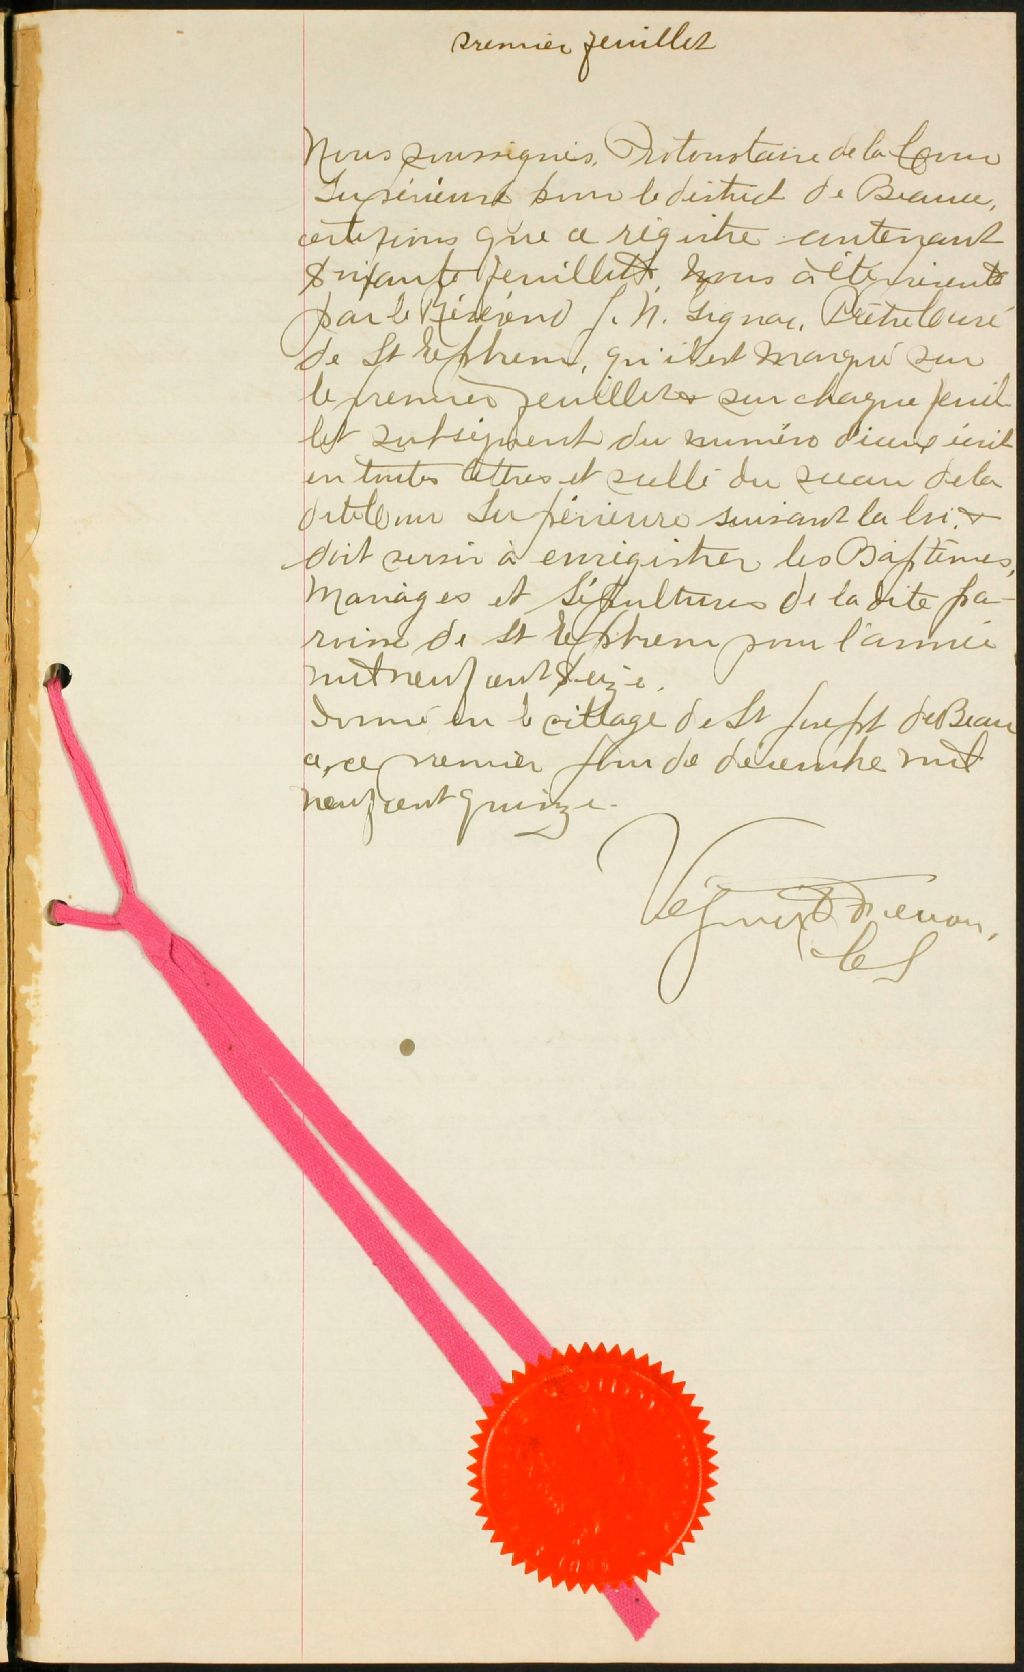 premier feuillet
Nous soussignés, Protonotaire de la Cour
Supérieure pour le district de Beauce,
certifions que ce régistre contenant
feuillets, nous a été présenté
par le Révérend J. N. Gignac, Prêtre Curé
de St Ephrem, qu'il est marqué sur
le premier feuillet & sur chaque feuil
let subséquent du numéro d'iceux écrit
en toutes lettres et scellé du sceau de la
dite Cour Supérieure suivant la loi, &
doit servir à enrégistrer les Baptêmes,
Mariages et Sépultures de la dite pa-
roisse de St Ephrem pour l'année
mil neuf cent seize.
Donné en le village de St Joseph de Beau
ce, ce premier jour de décembre mil
neuf cent quinze.
C S